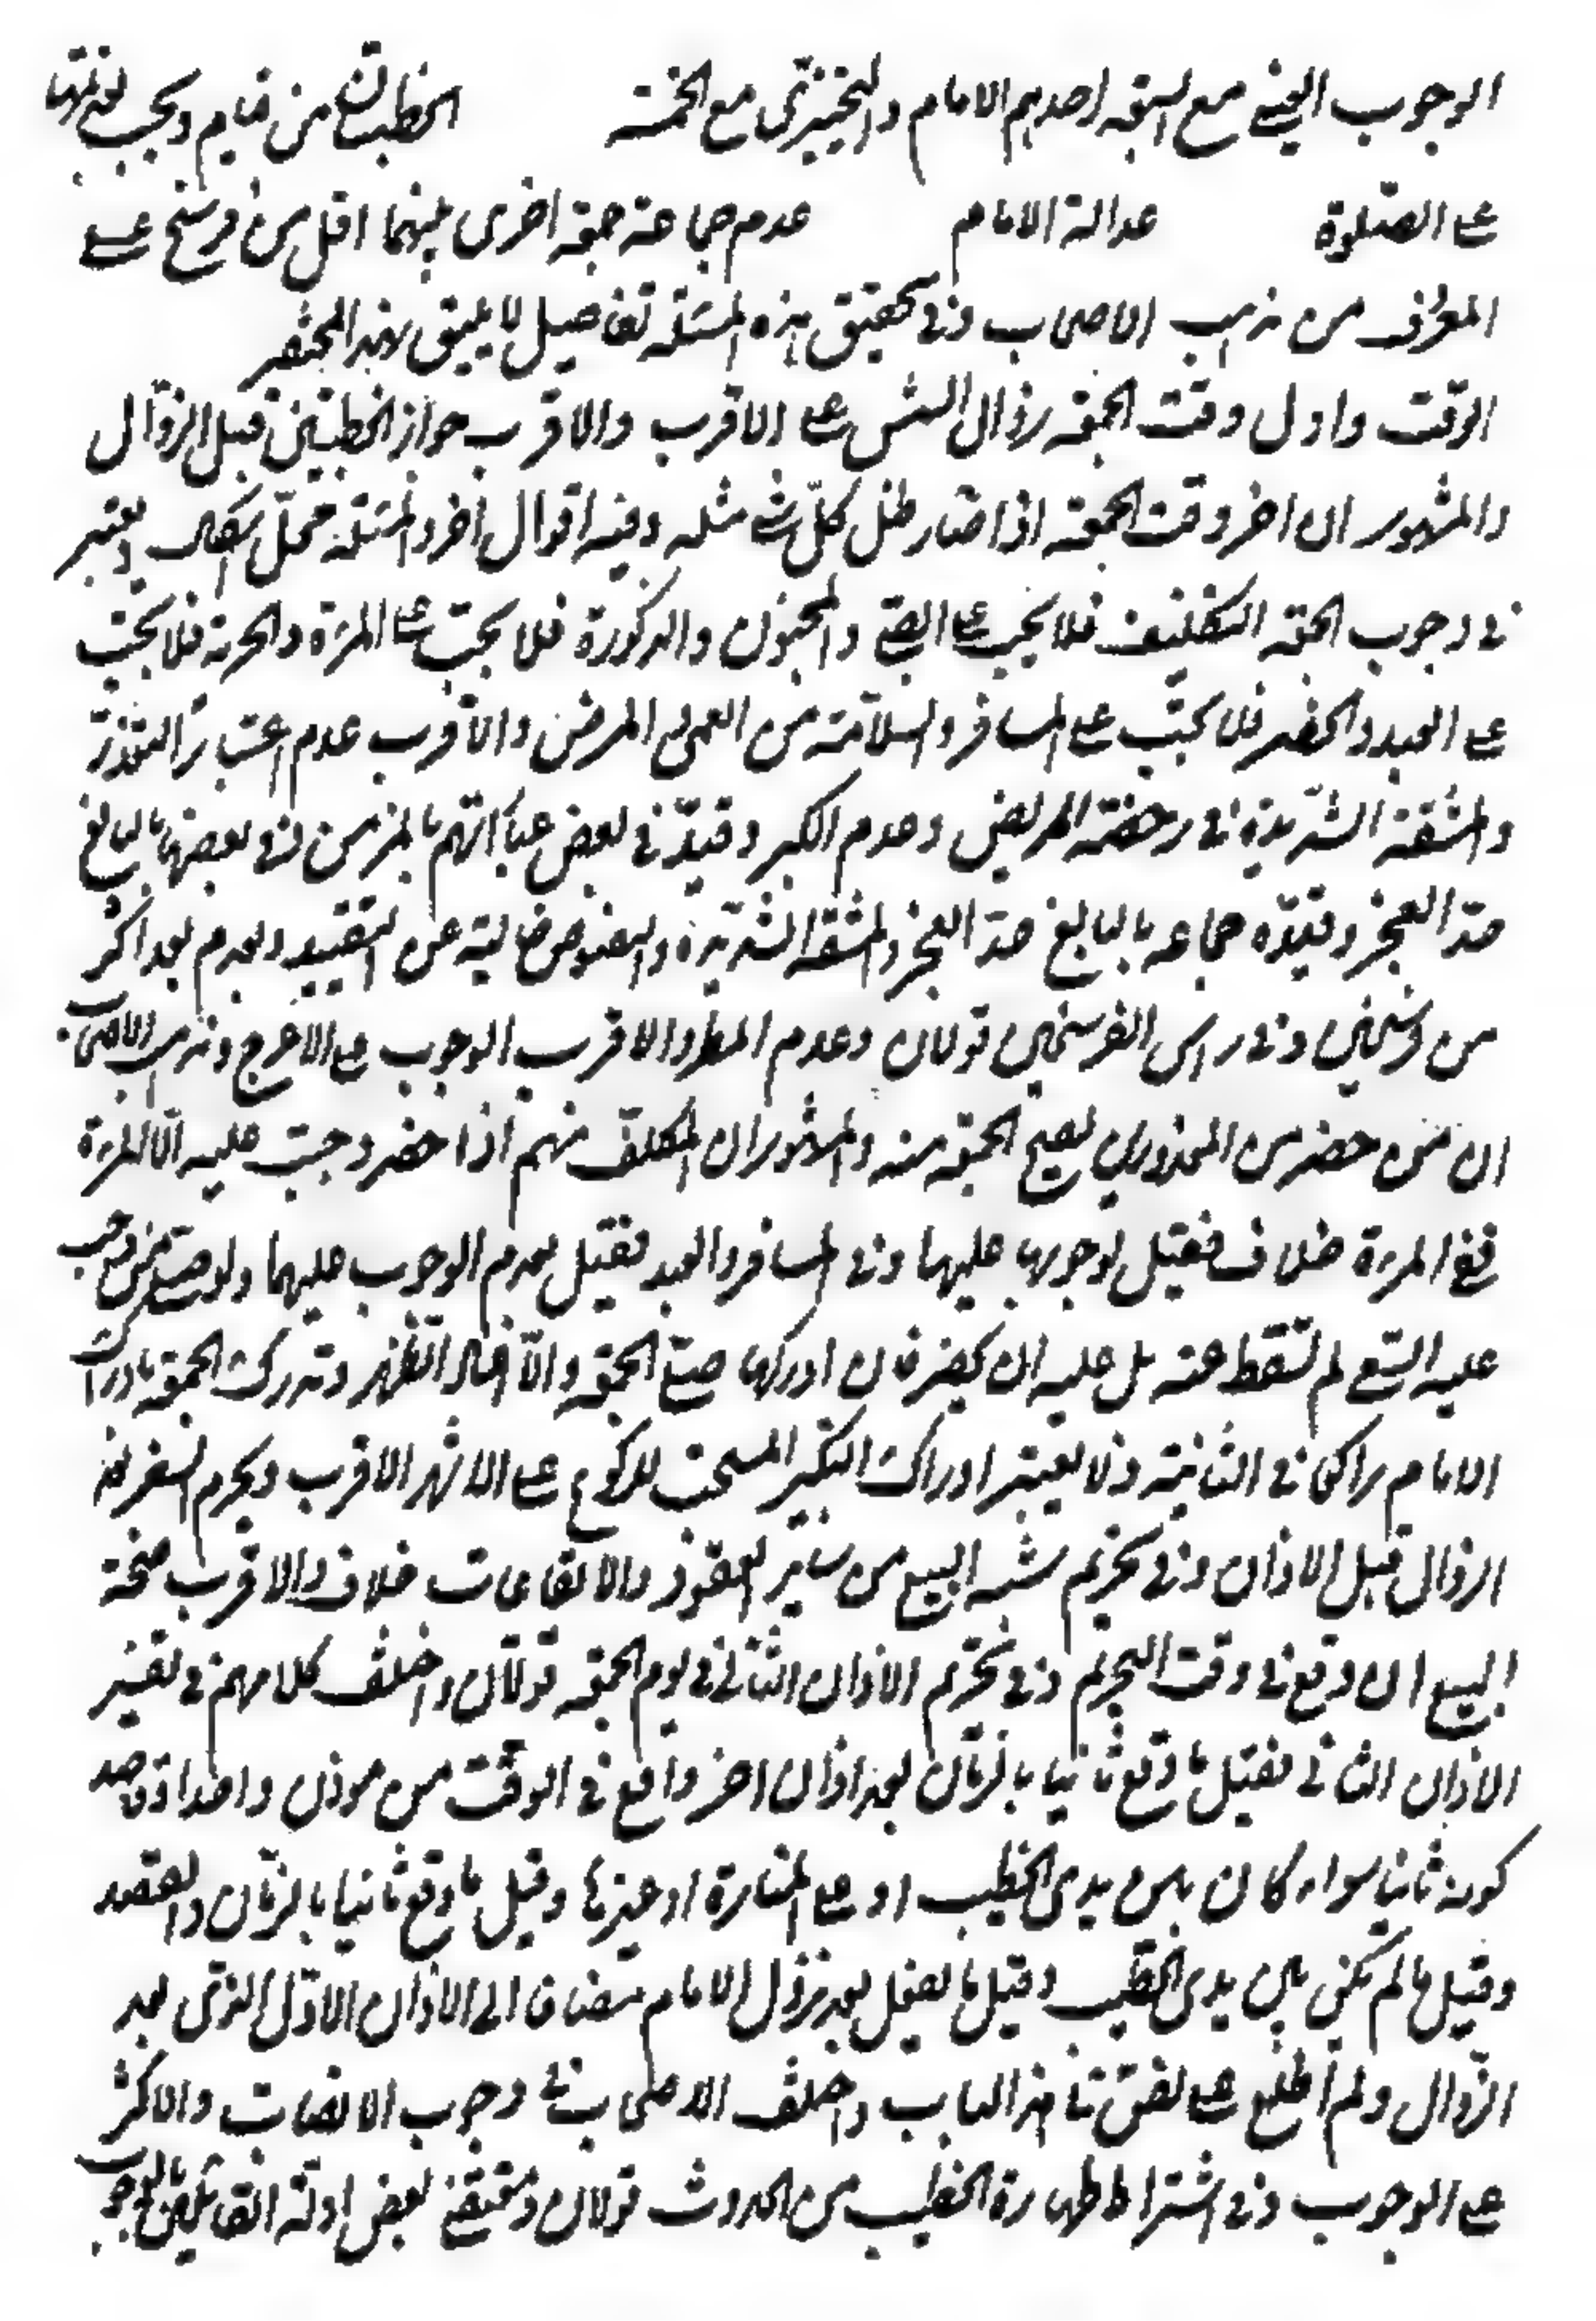 الوجوب العيني مع السبعة احدهم الامام والتخييري مع الخمسة الخطبتان من قيام ويجب تقديمهما
على الصلوة عدالة الامام عدم جماعة جمعة اخرى بينهما اقل من فرسخ على
المعروف من مذهب الاصحاب وفي تحقيق هذه المسئلة تفاصيل لا يليق بهذا المختصر
الوقت واول وقت الجمعة زوال الشمس على الاقرب والاقرب جواز الخطبتين قبل الزوال
والمشهور ان اخر وقت الجمعة اذا صار ظل كل شئ مثله وفيه اقوال اخر والمسئلة محل اشكال ويعتبر
في وجوب الجمعة التكليف فلا يجب على الصبي والمجنون والذكورة فلا تجب على المرءة والحرية فلا تجب
على العبد والحضر فلا تجب على المسافر والسلامة من العمى والمرض والاقرب عدم اعتبار التعذر
والمشقة الشديدة في رخصة المريض وعدم الكبر وقيد في بعض عباراتهم بالمزمن وفي بعضها بالبالغ
حد العجز وقيده جماعة بالبالغ حد العجز والمشقة الشديدة والنصوص خالية عن التقييد وعدم بعد اكثر
من فرسخين وفي راس الفرسخين قولان وعدم المطر والاقرب الوجوب على الاعرج ومذهب الاصحاب
ان من حضر من المعذورين يصح الجمعة منه والمشهور ان المكلف منهم اذا حضر وجبت عليه الا المرءة
ففي المرءة خلاف فقيل لوجوبها عليها وفي المسافر والعبد فقيل بعدم الوجوب عليهما ولو صلى من وجب
عليه السعي لم تسقط عنه بل عليه ان يحضر فان ادركها صلى الجمعة والا اعاد الظهر وتدرك الجمعة بادراك
الامام راكعا في الثانية ولا يعتبر ادراك التكبير المستحب للركوع على الاشهر الاقرب ويحرم السفر بعد
الزوال قبل الاذان وفي تحريم شبه البيع من ساير العقود والايقاعات خلاف والاقرب صحة
البيع ان وقع في وقت التحريم وفي تحريم الاذان الثاني في يوم الجمعة قولان واختلف كلامهم في تفسير
الاذان الثاني فقيل ما وقع ثانيا بالزمان بعد اذان اخر واقع في الوقت من موذن واحد او قاصد
كونه ثانيا سواء كان بين يدي الخطيب او على المنارة او غيرها وقيل ما وقع ثانيا بالزمان والقصد
وقيل ما لم يكن بين يدي الخطيب وقيل ما يفعل بعد نزول الامام مضافا الى الاذان الاول الذي بعد
الزوال ولم اطلع على نص في هذا الباب واختلف الاصحاب في وجوب الانصات والاكثر
على الوجوب وفي اشتراط طهارة الخطيب من الحدث قولان ومقتضى بعض ادلة القائلين بالوجوب